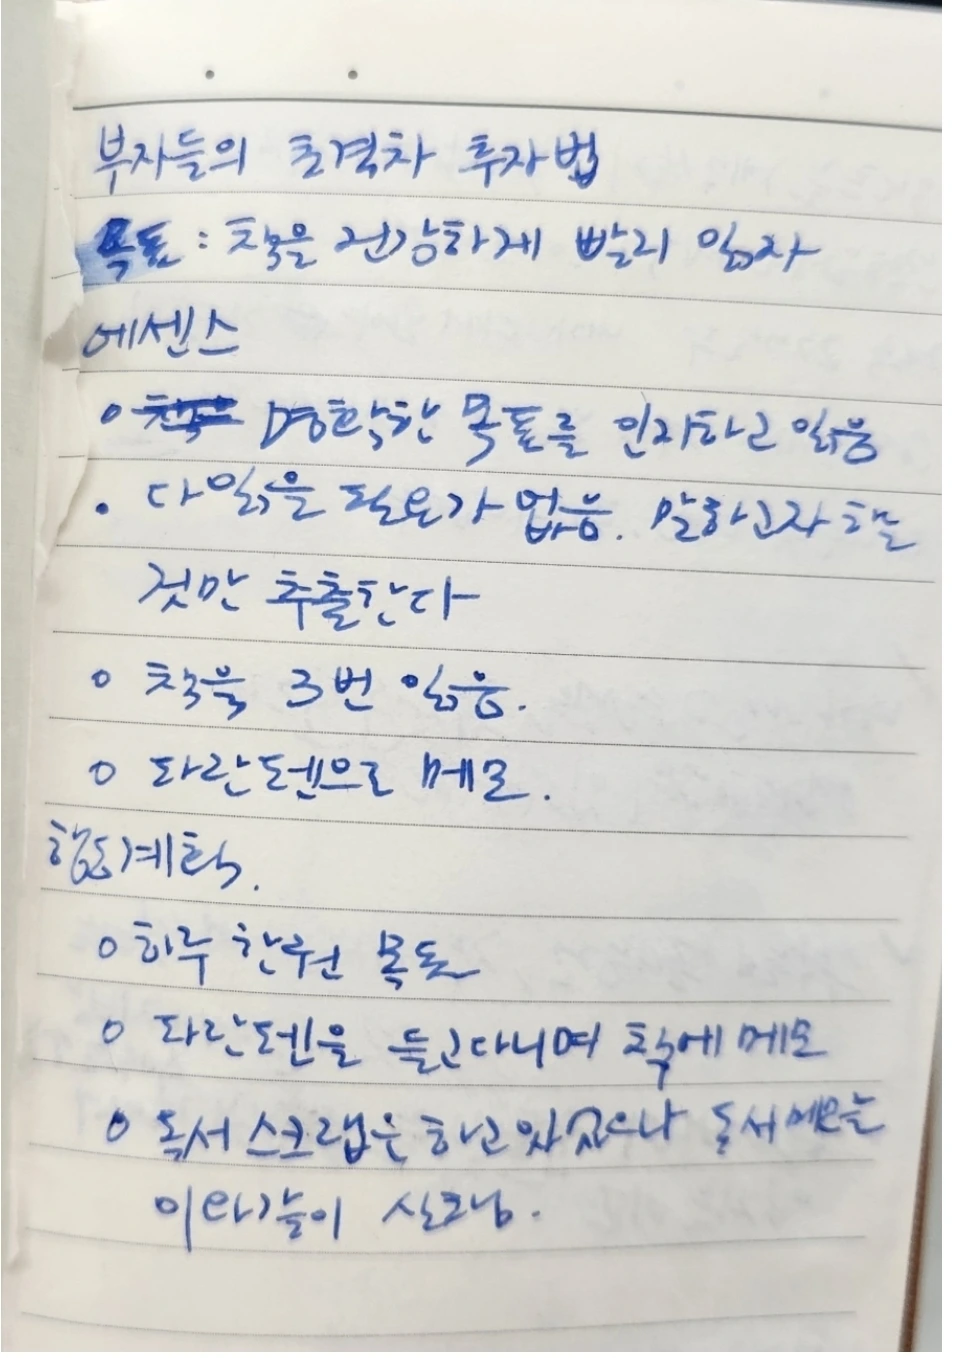 부자들의 초격차 투자법
목표 : 책을 건강하게 빨리 읽자
에센스
명확한 목표를 인지하고 읽음
다 읽을 필요가 없음. 말하고자 할
것만 추출한다
책을 3번 읽음.
파란펜으로 메모.
행동계획.
하루 한권 목표
파란펜을 들고다니며 책에 메모
독서 스크랩은 하고 있었으나 독서메모는